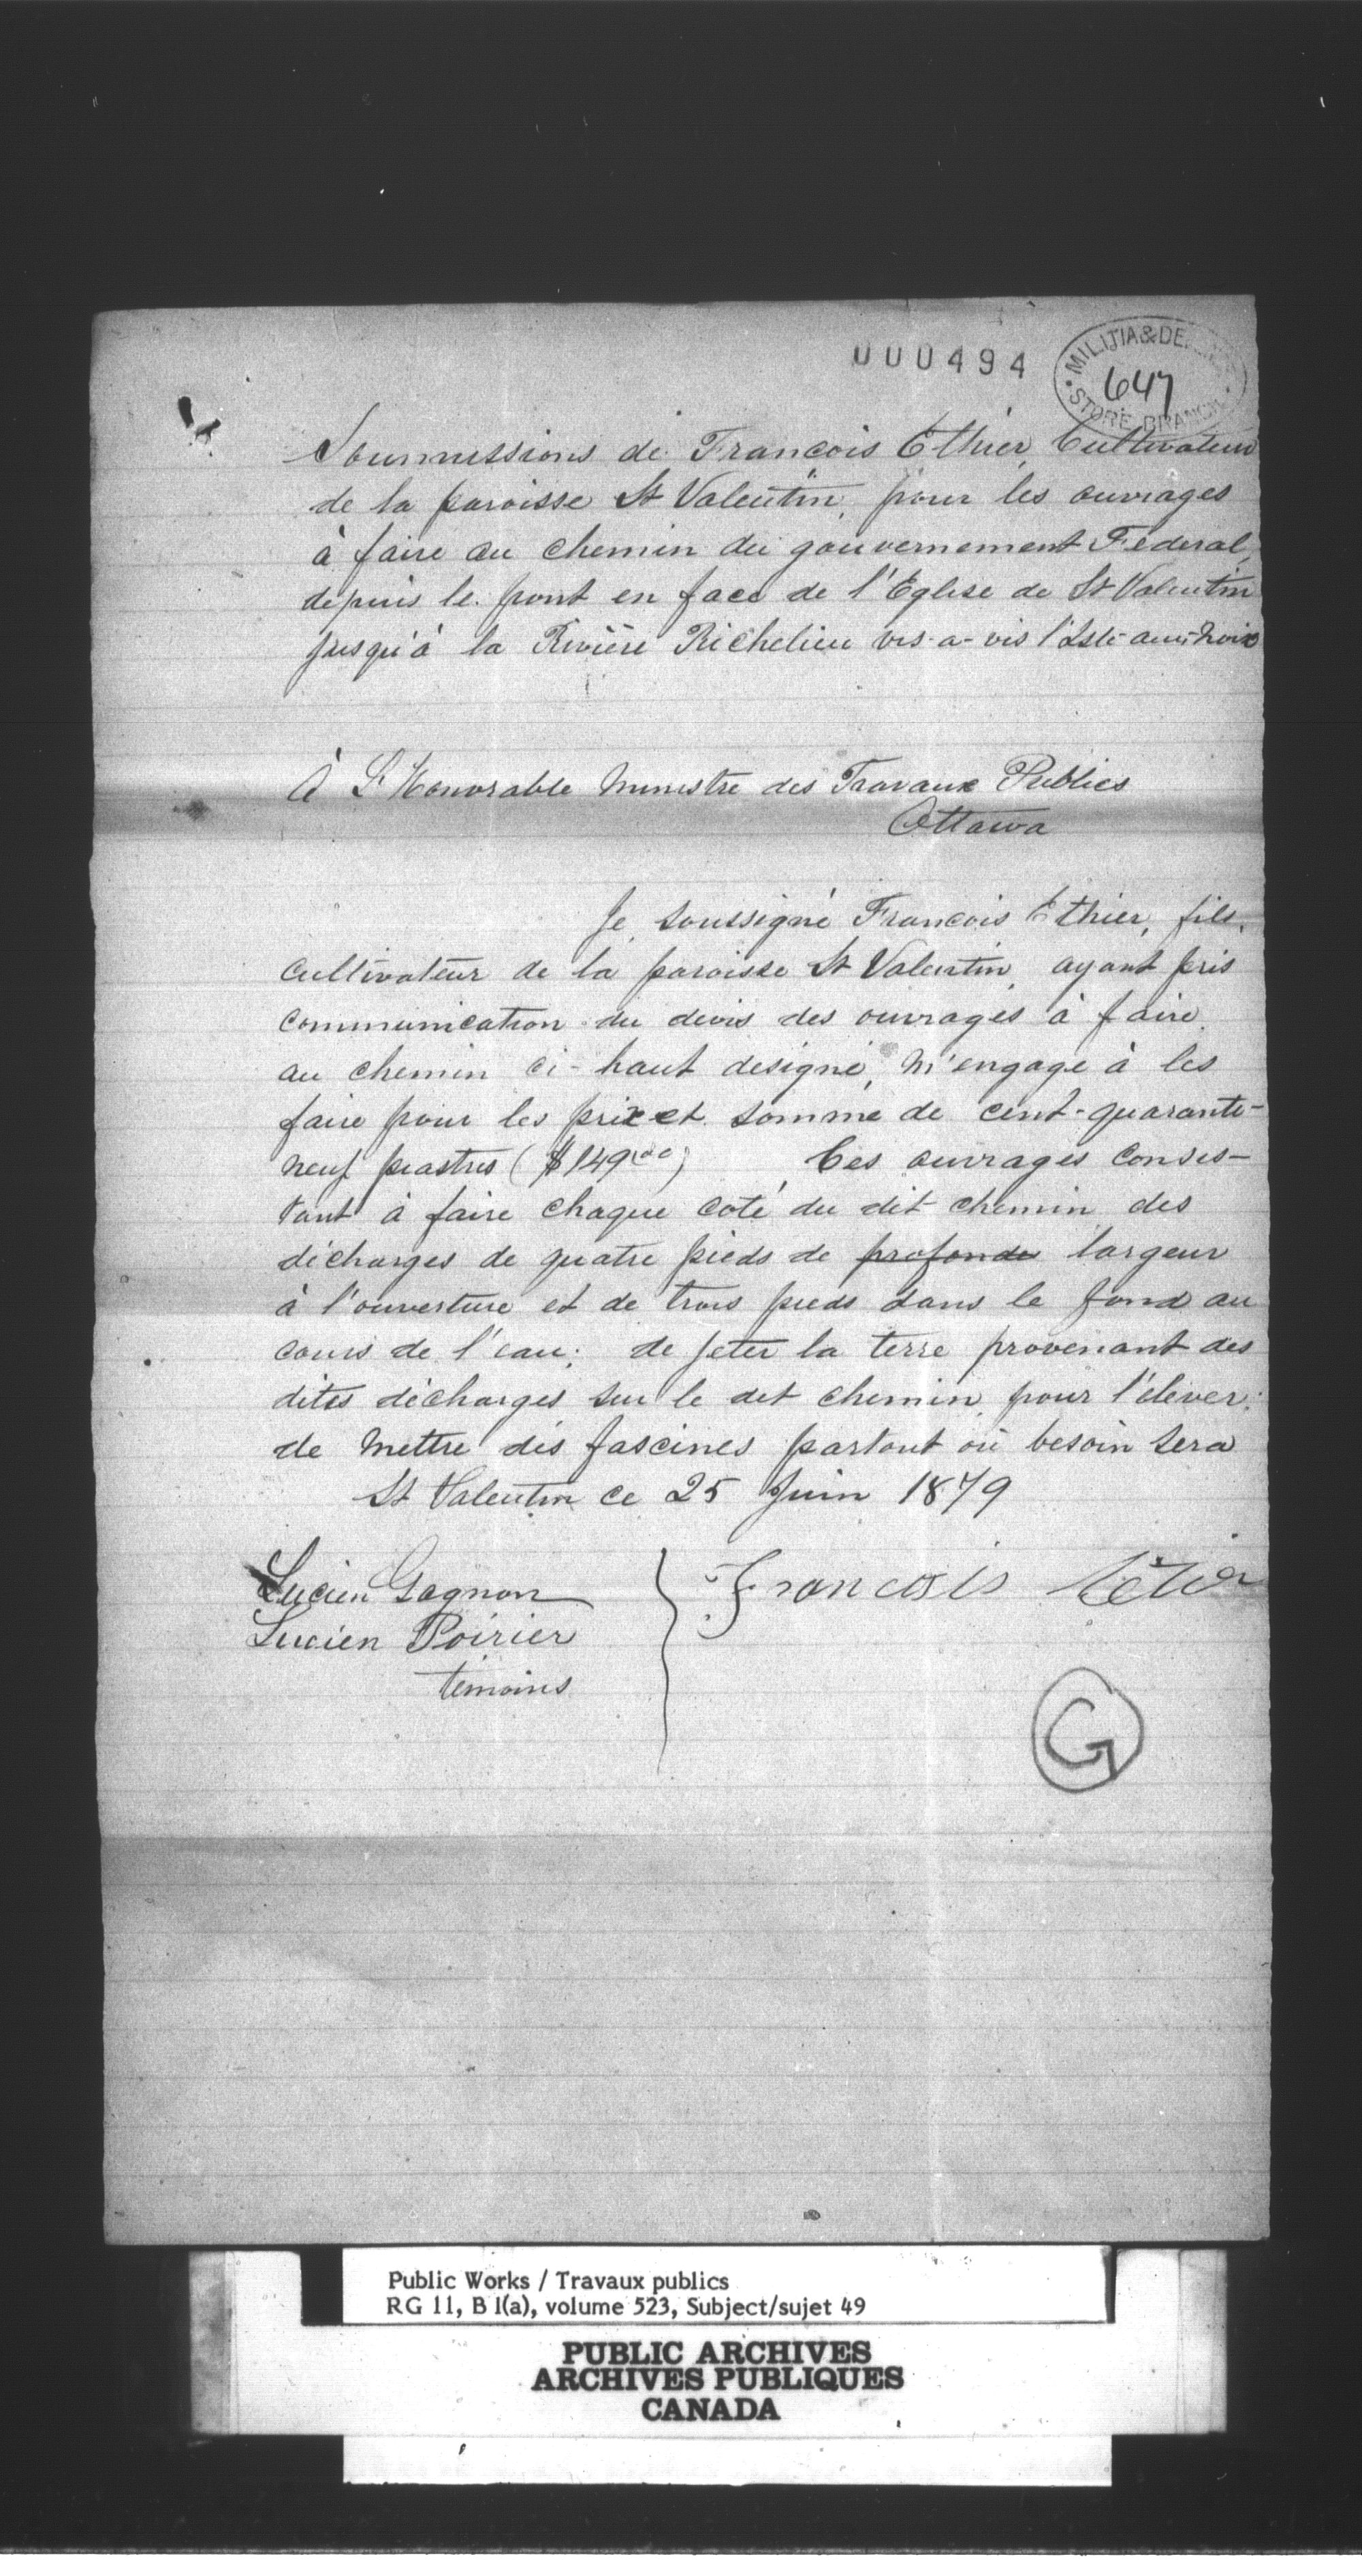 000494
MILITIA & DE
647
STORE BRANCH
Soumissions de Francois Ethier, Cultivateur
de la paroisse St Valentin, pour les ouvrages
à faire au chemin du gouvernement Féderal,
depuis le pont en face de l'Eglise de St Valentin
jusqu'à la Rivière Richelieu vis-a-vis l'Isle-aux-Noix
À L'Honorable Ministre des Travaux Publics
Ottawa
Je soussigné Francois Ethier, fils,
cultivateur de la paroisse St Valentin, ayant pris
communication du devis des ouvrages à faire
au chemin ci-haut designé, m'engage à les
faire pour les prix et somme de cent-quarante-
neuf piastres ($149.00) Ces ouvrages consis-
tant à faire chaque coté du dit chemin des
décharges de quatre pieds de profonde largeur
à l'ouverture et de trois pieds dans le fond au
cours de l'eau; de jeter la terre provenant des
dites décharges sur le dit chemin pour l'élever;
de mettre des fascines partout où besoin sera
St Valentin ce 25 Juin 1879
Lucien Gagnon
Francois
Lucien Poirier
témoins
G
Public Works / Travaux publics
RG 11, B 1(a), volume 523, Subject/sujet 49
PUBLIC ARCHIVES
ARCHIVES PUBLIQUES
CANADA